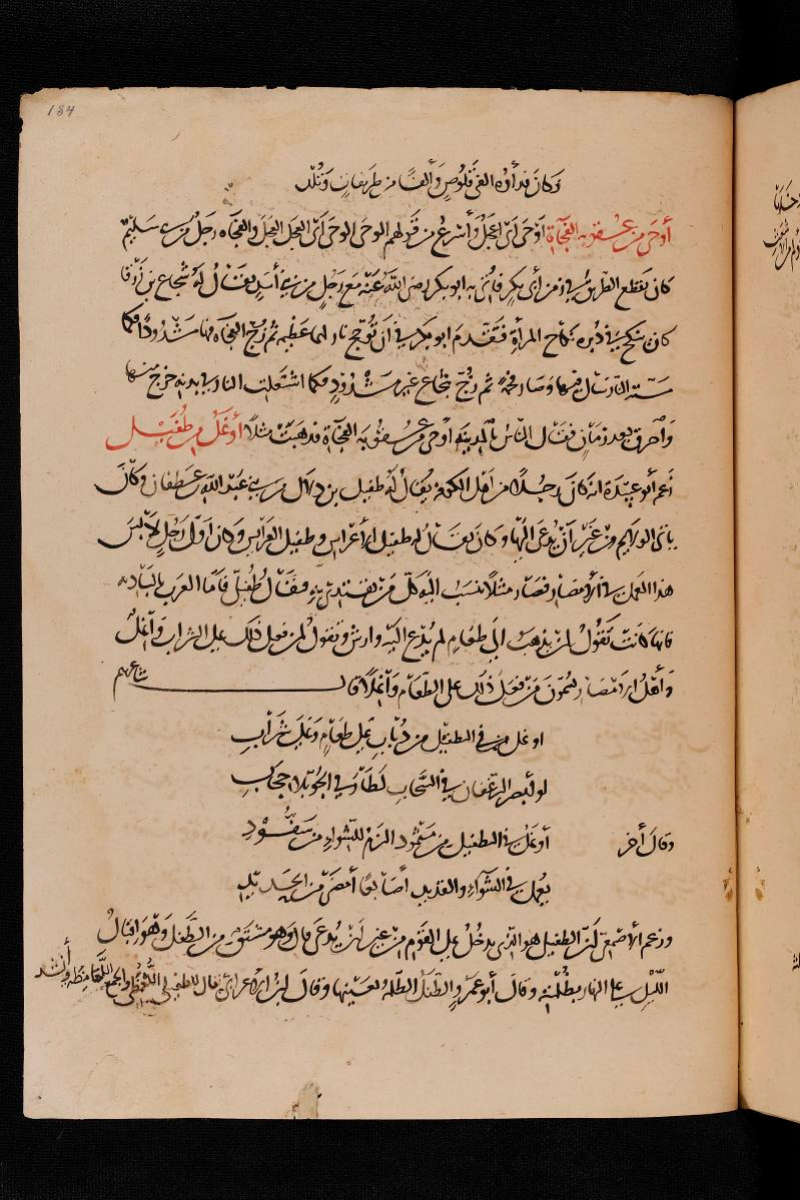 184
وَكانَ قد أوْهُ الفي قَلُوصٍ وَألفًا من طريفانٍ وَتُلّد
أوحَى من عُقوبة الفُجَآة أوْحَى اَىْ اعجَلُ وَأَسْرعُ من قَولهم الوحَى الوحَى اَىْ العجَل العجَل والفجآه رجلٌ من بني سُليم
كان يقطع الطريق في زمن أبى بكرٍ فأتى به ابو بكر رضى اللهُ عَنْهُ مَع رَجُلٍ من بنى أسَدٍ يقَالُ لهُ شجاع بن زرقا
كان ينكح في دُبره نكاح المرأة فتَقدمَ ابو بكر في أن تُؤجّج نار لهما عظيمة ثم زُجّ الفجآه فيها مَشْدُودًا فكلما
مسّته النار سَال فيها وصَار فحمة ثم زُجّ شجاع غير مشْدُودٍ فكلما اشتعلت النار في بدنه خرج منها
وَاحترق بعد زمانٍ فقال الناسُ بالمدينة اوحى من عُقُوبة الفجآة فذهبَتْ مثلًا أوغَلُ من طُفَيل
زعم أبو عبيدة انه كانَ رجُلًا من اهل الكوفة يقالُ له طفيل بن دلال من بنى عبد الله بن غطفان وكانَ
يأتى الولايم من غير أن يُدعَى اليها وكانَ يقالُ له طفيل الأعراس وطفيل العرايس وكان اوّل رجُلٍ لابسَ
هذا العمل في الأمصار فصَار مثلًا ينسَبُ اليه كلّ مَن يقتدى به فيقَالُ طُفيلىّ فأمّا العرب بالبادية
فانها كانَتْ تَقُولُ لمن يذهبُ الى طعَامٍ لم يُدْع اليه وارش وتقولُ لمن فعل ذلك على الشراب وَاغلٌ
وَأهْلُ الأمصَار يسمّونَ مَن فعل ذلك على الطّعام وَاغلًا قال شاعرهم
اوغل من في التطفيل من ذُبابِ على طعَامٍ وَعَلى شَرابِ
لو أبصر الرغفان في السّحاب لَطَار في الجوّ بلا حجابِ
وقال أخر أوغلُ في التطفيل من مثمودِ الزمْ للشواءِ من سفّودِ
يعمل في الشّوآءِ والقديد أصَابعًا أمضَى من الحديدِ
وزعم الأصمعىّ أنّ الطفيلى هو الذى يدخُلُ على القَومِ من غير أن يُدعَى قال وهو مشتقّ من الطفَل وَهوَ اقبالُ
اللّيْلِ على النهار بظُلمته وقالَ أبو عمرٍو الطفَلُ الظلمة بعَينها وقالَ ابن الاعرابى يقال للطفيلى اللَّعْمَظىّ والجمع اللَّعَامِظَه وأنشد